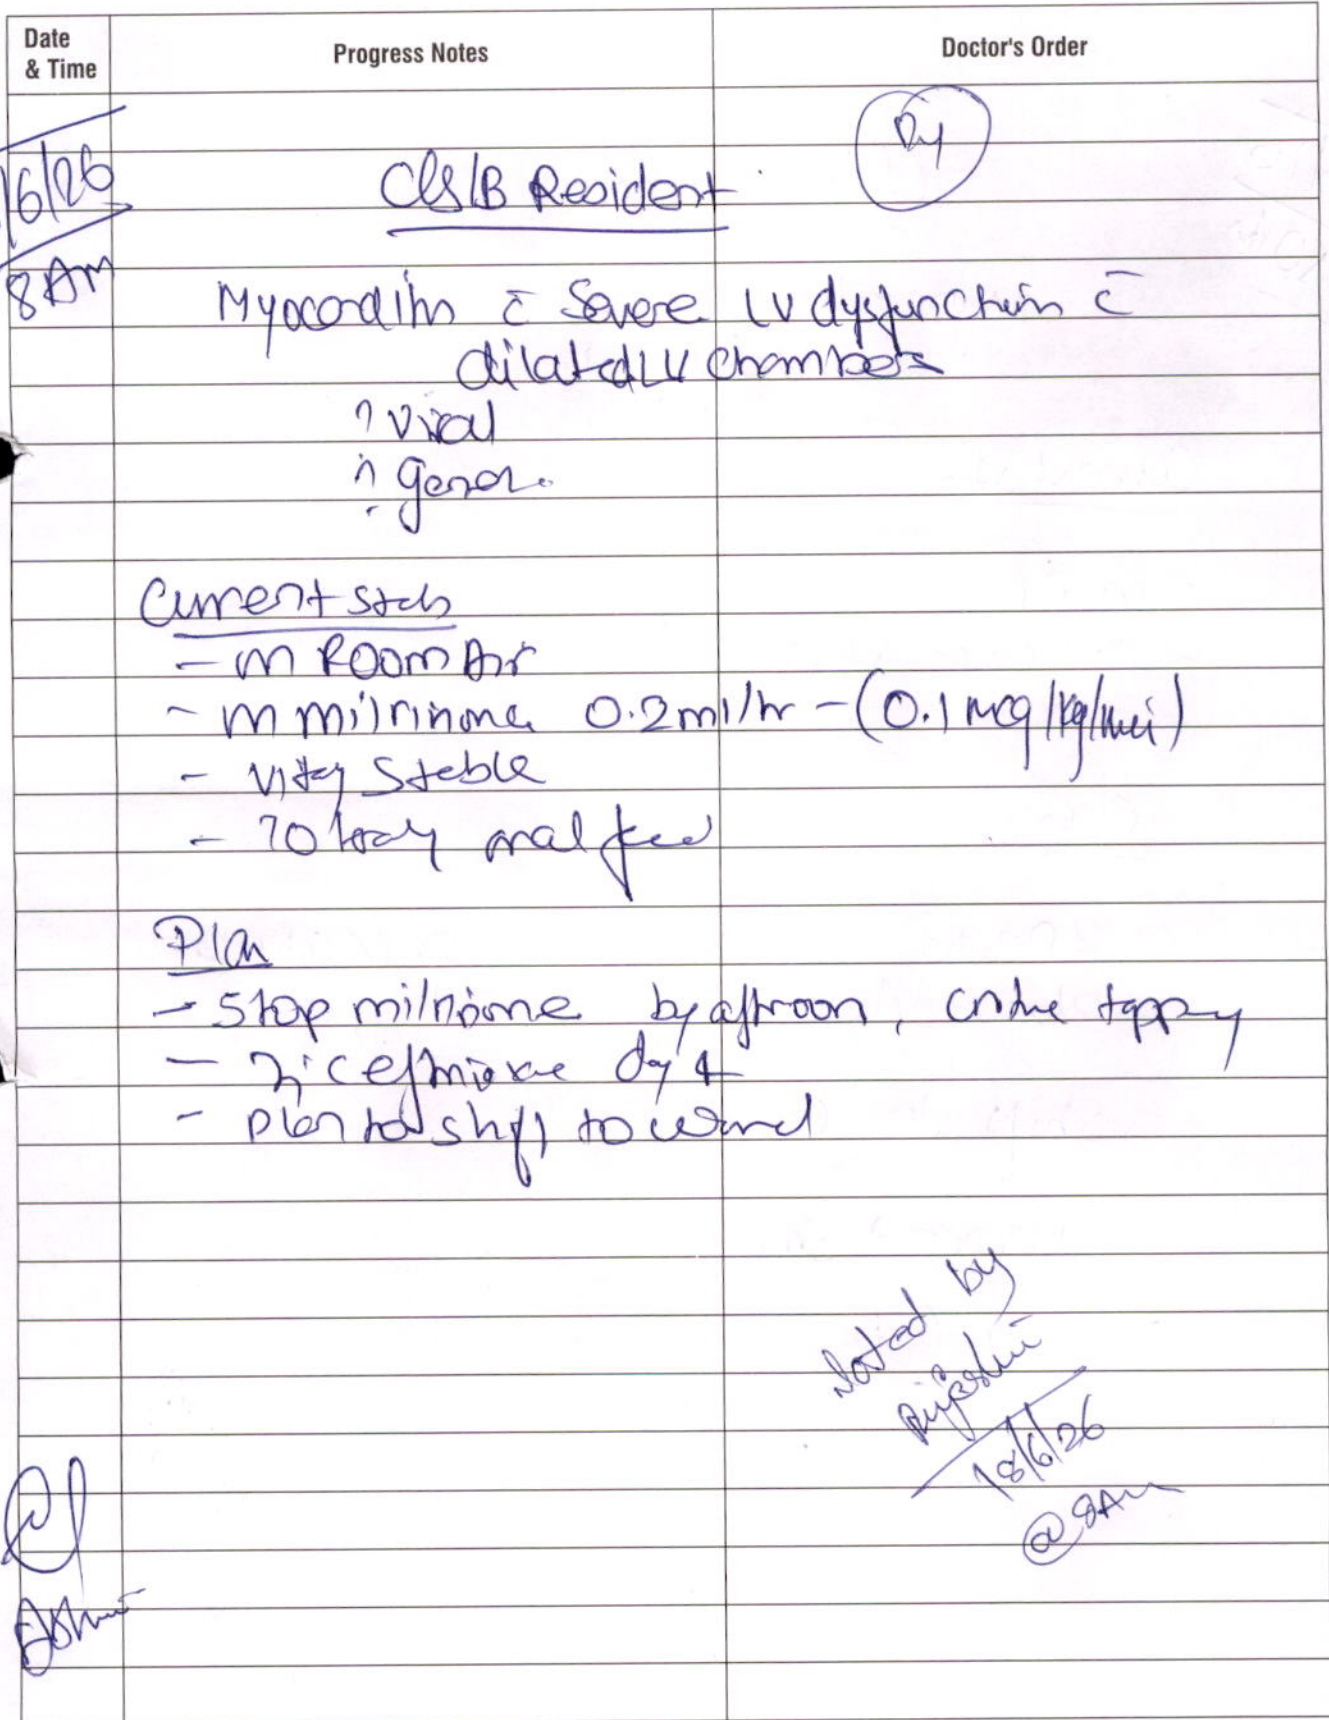 Date & Time
Progress Notes
Doctor's Order
/6/26
8 AM
C/S/B Resident
Myocarditis c̄ Severe LV dysfunction c̄
dilated LV Chambers
? Viral
?
Current status
- on Room Air
- on milrinone 0.2ml/hr - (0.1 mcg/kg/min)
- Vitals Stable
- oral feed
Plan
- Stop milrinone by afternoon,
- day 4
- plan to shift to ward
Noted by
18/6/26
@ 8AM